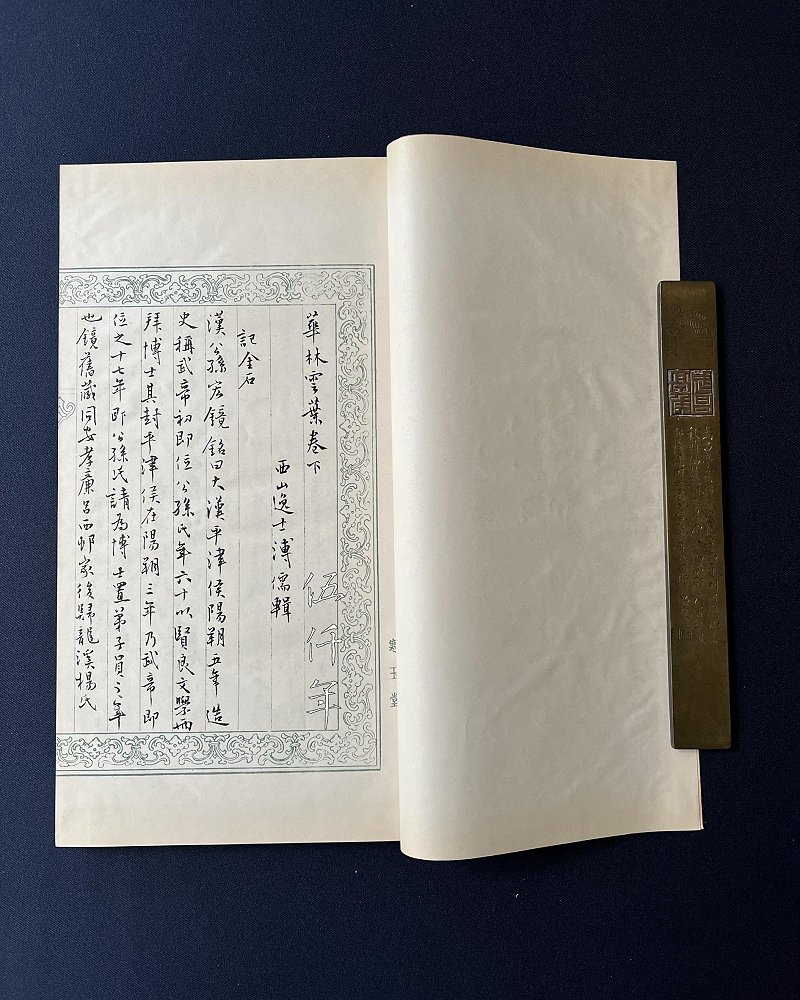 華林雲葉卷下
西山逸士溥儒輯
記金石
漢公孫宏鏡銘曰大漢平津侯陽朔五年造
史稱武帝初即位公孫氏年六十以賢良文學
拜博士其封平津侯在陽朔三年乃武帝即
位之十七年即公孫氏請為博士置弟子員之年
也鏡舊藏同安孝廉呂西邨家後歸龍溪楊氏
伍仟年
寒玉堂